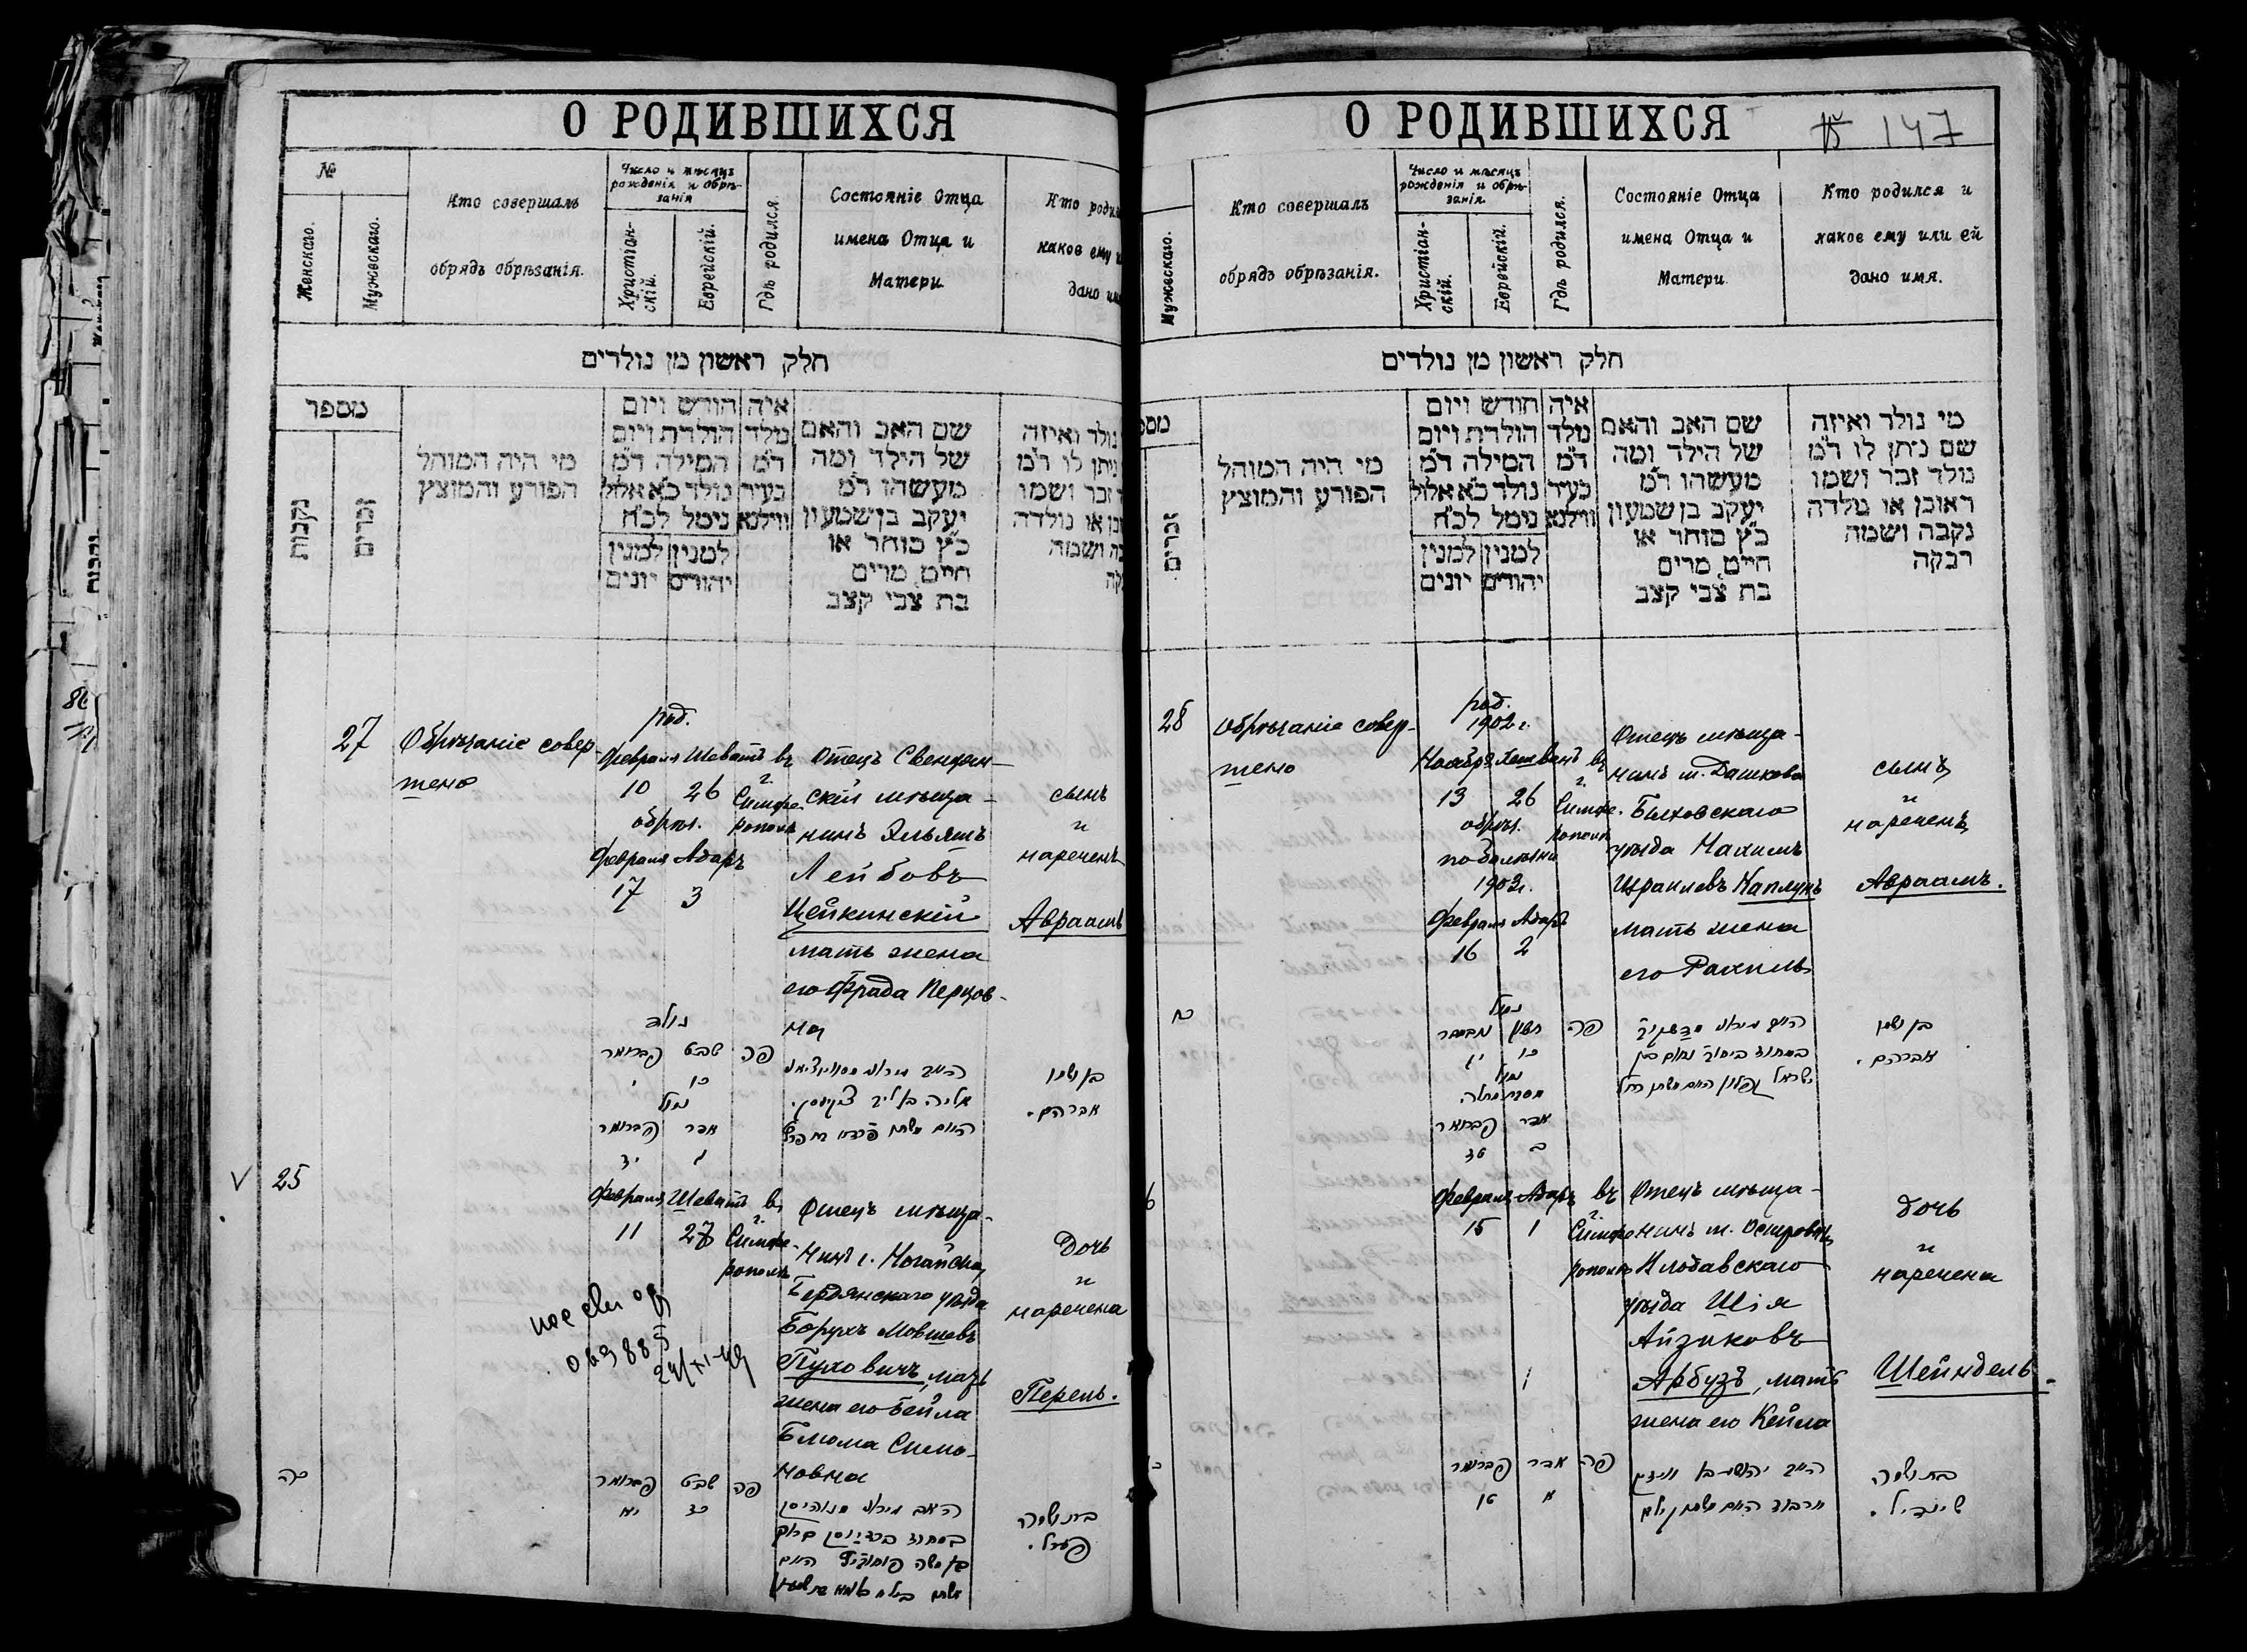 О РОДИВШИХСЯ
№
Женскаго.
Мужескаго.
Кто совершалъ
обрядъ обрѣзанія.
Число и мѣсяцъ
рожденія и обрѣ-
занія
Христіан-
скій.
Еврейскій.
Гдѣ родился.
Состояніе Отца
имена Отца и
Матери
Кто роди
каков ему
дано им
חלק ראשון מן נולדים
מספר
נקבות
זכרים
מי היה המוהל
הפורע והמוצץ
חודש ויום
הולדת ויום
המילה ד״מ
נולד כ״א אלול
נימל לכ״ח
למנין למנין
יהודים יונים
איה
נולד
ד״מ
בעיר
ווילנא
שם האב והאם
של הילד ומה
מעשהו ד״מ
יעקב בן שמעון
כ״ץ סוחר או
חייט מרים
בת צבי קצב
נולד ואיזה
ניתן לו ד״מ
זכר ושמו
או נולדה
ושמה
27
Обрѣзаніе совер-
шено
род.
Февраля Шеватъ
10 26
обрѣз.
Февраля Адаръ
17 3
въ
г.
Симфе-
рополѣ
Отецъ Свенцян-
скій мѣща-
нинъ Эльяшъ
Лейбовъ
Цейкинскій
мать жена
его Фрада Перцов-
на
сынъ
и
нареченъ
Авраамъ
נולד
שבט פברואר
כו י
נמול
אדר פברואר
ג יז
פה
בן ושמו
אברהם.
25
Февраля Шеватъ
11 27
въ
г.
Симфе-
рополѣ
Отецъ мѣща-
нинъ г. Ногайска,
Бердянскаго уѣзда
Борухъ Мовшевъ
Пуховичъ, мать
жена его Бейла
Блюма Симо-
новна
Дочь
и
наречена
Перель.
069885
24/XI-49
כה
שבט פברואר
כז יא
פה
בת ושמה
פערל.
О РОДИВШИХСЯ
15 147
Мужескаго.
Кто совершалъ
обрядъ обрѣзанія.
Число и мѣсяцъ
рожденія и обрѣ-
занія.
Христіан-
скій.
Еврейскій.
Гдѣ родился.
Состояніе Отца
имена Отца и
Матери
Кто родился и
каков ему или ей
дано имя.
חלק ראשון מן נולדים
מספ
זכרים
מי היה המוהל
הפורע והמוצץ
חודש ויום
הולדת ויום
המילה ד״מ
נולד כ״א אלול
נימל לכ״ח
למנין למנין
יהודים יונים
איה
נולד
ד״מ
בעיר
ווילנא
שם האב והאם
של הילד ומה
מעשהו ד״מ
יעקב בן שמעון
כ״ץ סוחר או
חייט מרים
בת צבי קצב
מי נולד ואיזה
שם ניתן לו ד״מ
נולד זכר ושמו
ראובן או נולדה
נקבה ושמה
רבקה
28
Обрѣзаніе совер-
шено
род.
1902 г.
Ноября Хешванъ
13 26
обрѣз.
по болѣзни
1903 г.
Февраля Адаръ
16 2
въ
г.
Симфе-
рополѣ
Отецъ мѣща-
нинъ м. Дашкова
Быховскаго
уѣзда Нахимъ
Израилевъ Каплунъ
мать жена
его Рахиль
сынъ
и
нареченъ
Авраамъ.
כח
פה
בן ושמו
אברהם.
אדר פברואר
ב טז
6
Февраля Адаръ
15 1
въ
г.
Симфе-
рополѣ
Отецъ мѣща-
нинъ м. Островецъ
уѣзда Шія
Айзиковъ
Арбузъ, мать
жена его Кейла
Дочь
и
наречена
Шейндель.
אדר פברואר
א טו
פה
בת ושמה
שינדיל.